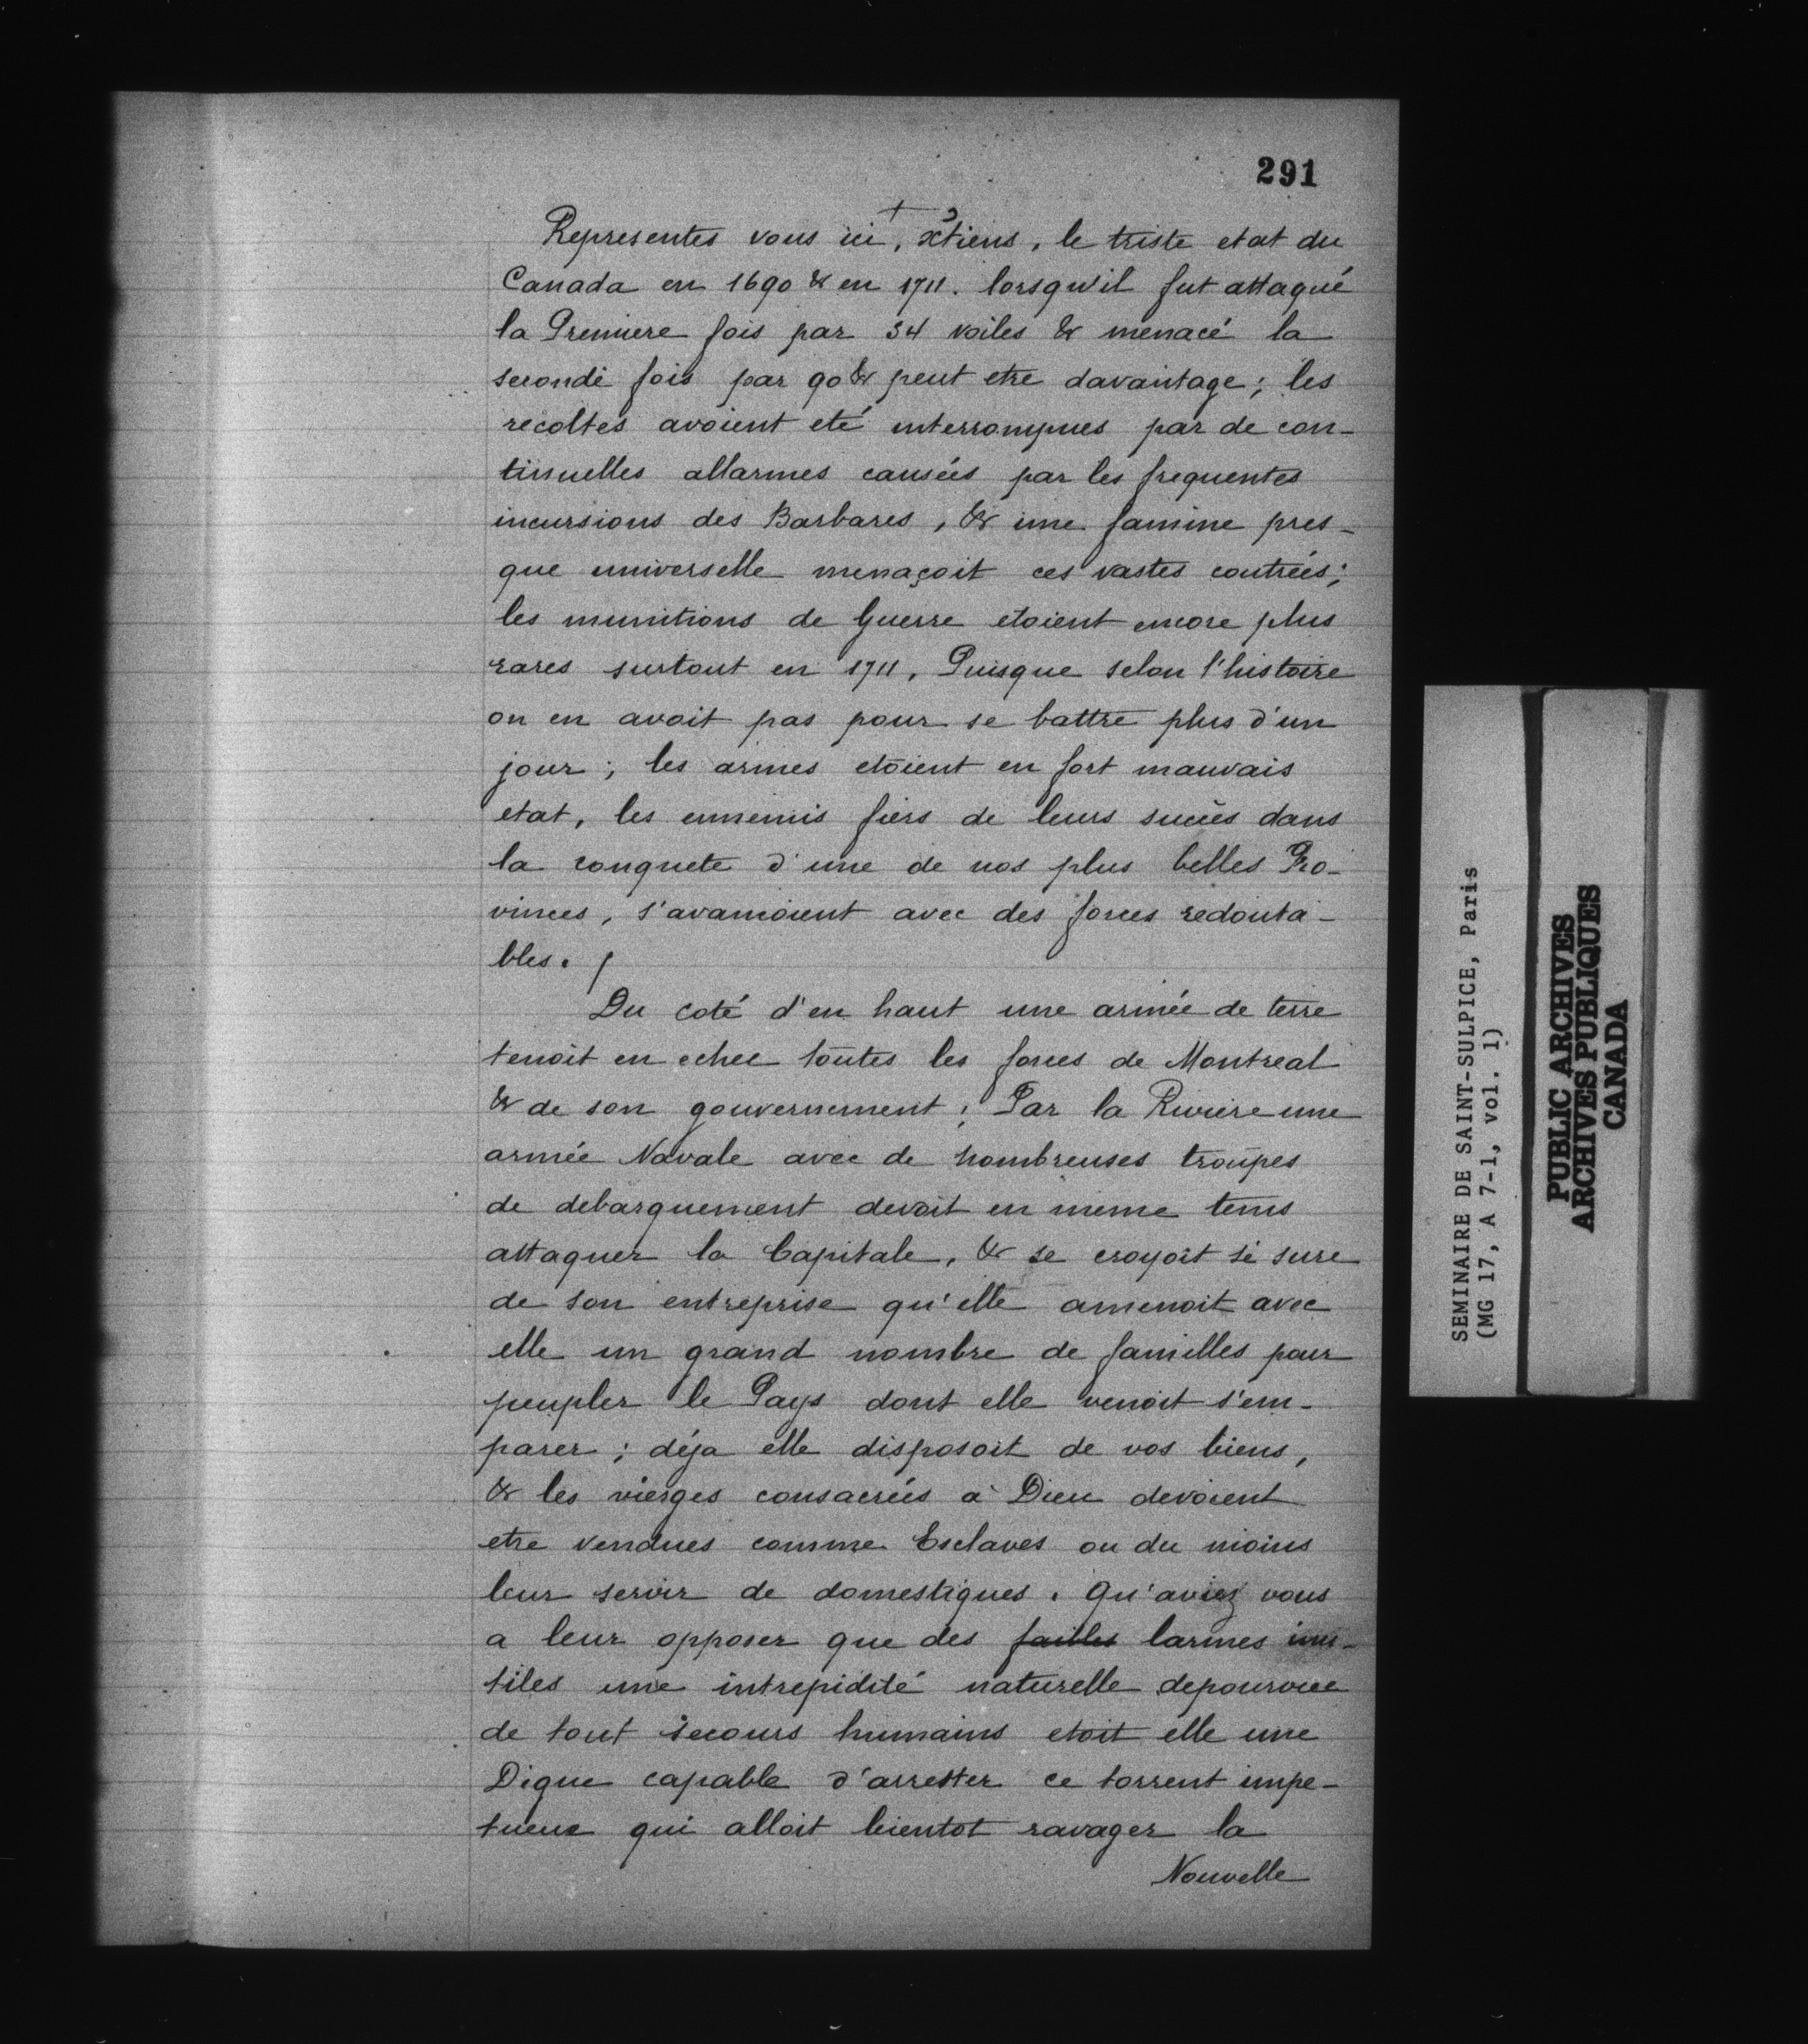 291
Representes vous ici, xtiens, le triste etat du
Canada en 1690 & en 1711. lorsqu'il fut attaqué
la Premiere fois par 34 voiles & menacé la
seconde fois par 90 & peut etre davantage; les
recoltes avoient eté interrompues par de con-
tinuelles allarmes causées par les frequentes
incursions des Barbares, & une famine pres-
que universelle menaçoit ces vastes contrées;
les munitions de Guerre etoient encore plus
rares surtout en 1711, Puisque selon l'histoire
on en avoit pas pour se battre plus d'un
jour; les armes etoient en fort mauvais
etat, les ennemis fiers de leurs succès dans
la conquete d'une de nos plus belles Pro-
vinces, s'avancoient avec des forces redouta-
bles. /
Du coté d'en haut une armée de terre
tenoit en echec toutes les forces de Montreal
& de son gouvernement; Par la Riviere une
armée Navale avec de nombreuses troupes
de debarquement devoit en meme tems
attaquer la Capitale, & se croyoit si sure
de son entreprise qu'elle amenoit avec
elle un grand nombre de familles pour
peupler le Pays dont elle venoit s'em-
parer; déja elle disposoit de vos biens,
& les vierges consacrées à Dieu devoient
etre vendues comme Esclaves ou du moins
leur servir de domestiques. Qu'aviez vous
a leur opposer que des faibles larmes inu-
tiles une intrepidité naturelle depourvue
de tout secours humains etoit elle une
Digue capable d'arrester ce torrent impe-
tueux qui alloit bientot ravager la
Nouvelle
SEMINAIRE DE SAINT-SULPICE, Paris
(MG 17, A 7-1, vol. 1)
PUBLIC ARCHIVES
ARCHIVES PUBLIQUES
CANADA